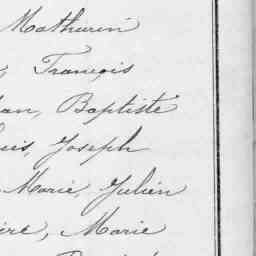 Mathurin
François
Baptiste
Joseph
Marie, Julien
Marie